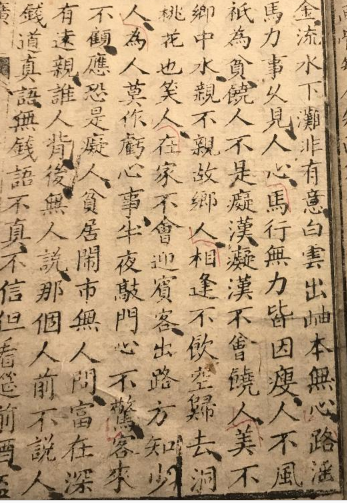 金流水下灘非有意白雲出岫本無心路遙
馬力事久見人心馬行無力皆因瘦人不風
祇為貧饒人不是癡漢癡漢不會饒人美不
鄉中水親不親故鄉人相逢不飲空歸去洞
桃花也笑人在家不會迎賓客出路方知少
人為人莫作虧心事半夜敲門心不驚客來
不顧應恐是癡人貧居鬧市無人問富在深
有遠親誰人背後無人說那個人前不說人
錢道真語無錢語不真不信但看筵前酒